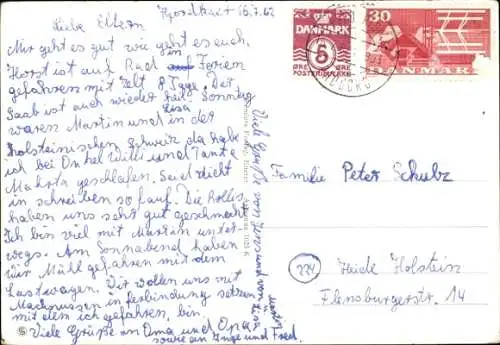 Nordkrut 16.7.62
Liebe Eltern
Mir geht es gut wie geht es euch,
Horst ist auf Rad in Ferien
gefahren mit Zelt 8 Tage. Der
Saab ist auch wieder heil. Sonntag
waren Martin und in der Lisa
Holsteinischen Schweiz da habe
ich bei Onkel Willi und Tante
Mahrta geschlafen. Seid nicht
in schreiben so faul. Die
haben uns sehr gut geschmeckt
Ich bin viel mit Martin unter-
wegs. Am Sonnabend haben
wir Mühl gefahren mit dem
Lastwagen. Wir wollen uns mit
Magnussen in Ferbindung setzen
mit dem ich gefahren, bin.
Viele Grüße an Oma und Opa
sowie an Inge und Fred.
Viele Grüße von Horst und von Lisa
Martin
DANMARK
5
ØRE ØRE
POSTFRIMÆRKE
30
DANMARK
Familie Peter Schulz
(224) Heide Holstein
Flensburgerstr. 14